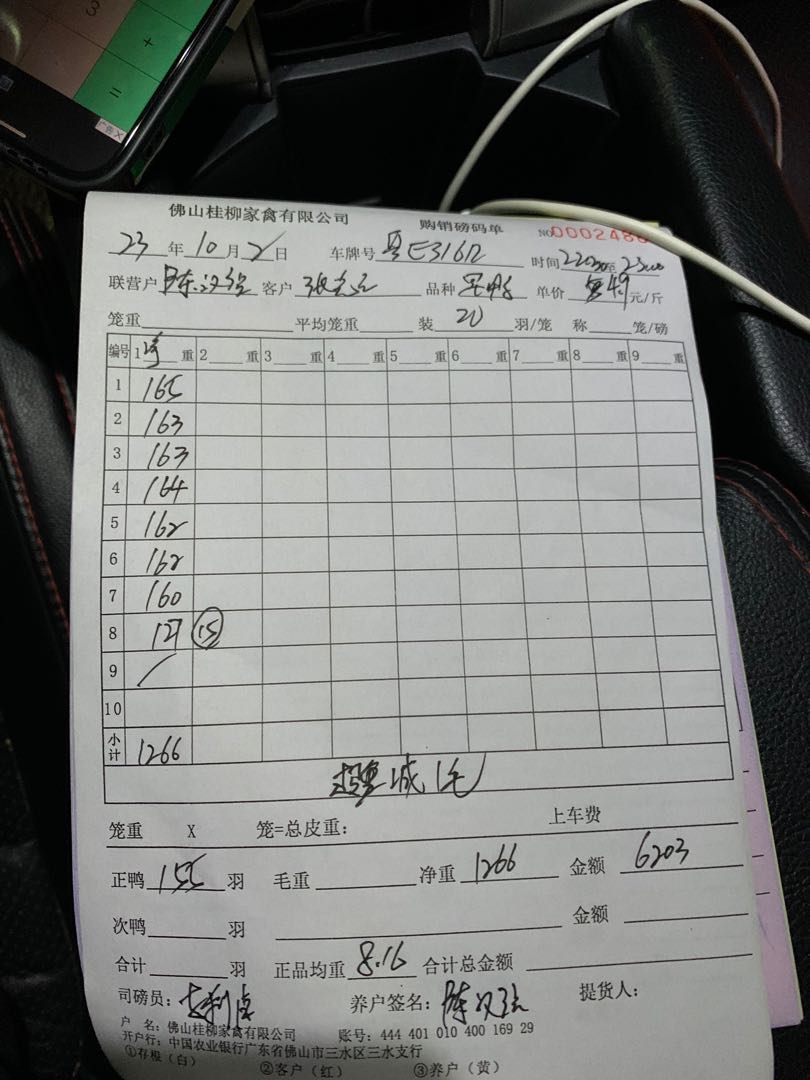 3
+
=
广告 X
佛山桂柳家禽有限公司 购销磅码单 NO 0002486
23 年 10 月 2 日 车牌号 粤E316 时间 至
联营户 陈汉 客户 品种 单价 4.9 元/斤
笼重 平均笼重 装 20 羽/笼 称 笼/磅
编号 1 净 重 2 重 3 重 4 重 5 重 6 重 7 重 8 重 9 重
1 165
2 163
3 163
4 164
5 162
6 162
7 160
8 127 15
9 /
10
小计 1266
超重减1毛
笼重 X 笼=总皮重: 上车费
正鸭 155 羽 毛重 净重 1266 金额 6203
次鸭 羽 金额
合计 羽 正品均重 8.16 合计总金额
司磅员: 养户签名: 陈汉 提货人:
户 名: 佛山桂柳家禽有限公司 账号: 444 401 010 400 169 29
开户行: 中国农业银行广东省佛山市三水区三水支行
①存根(白) ②客户(红) ③养户(黄)